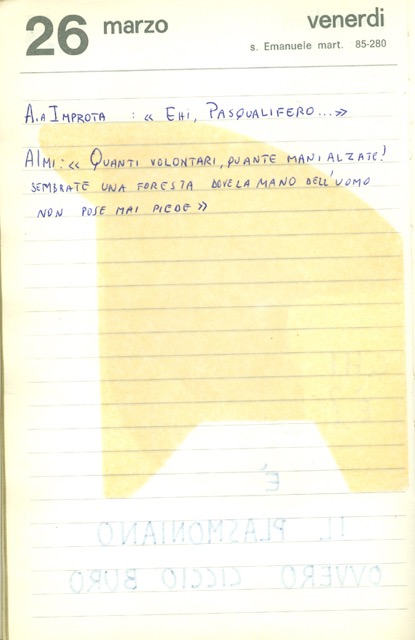 26 marzo venerdi
s. Emanuele mart. 85-280
A.A IMPROTA : « EHI, PASQUALIFERO...»
AIMI: « QUANTI VOLONTARI, QUANTE MANI ALZATE!
SEMBRATE UNA FORESTA DOVE LA MANO DELL'UOMO
NON POSE MAI PIEDE »
È
IL PLASMONIANO
OVVERO CICCIO BURO